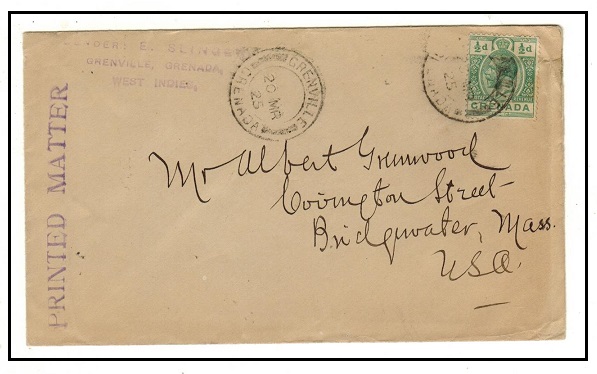 E. SLINGER
GRENVILLE, GRENADA,
WEST INDIES,
PRINTED MATTER
GRENVILLE
20 MR
25
GRENADA
½d ½d
GRENADA
25
Mr Albert Greenwood
Covington Street
Bridgewater, Mass.
USA.